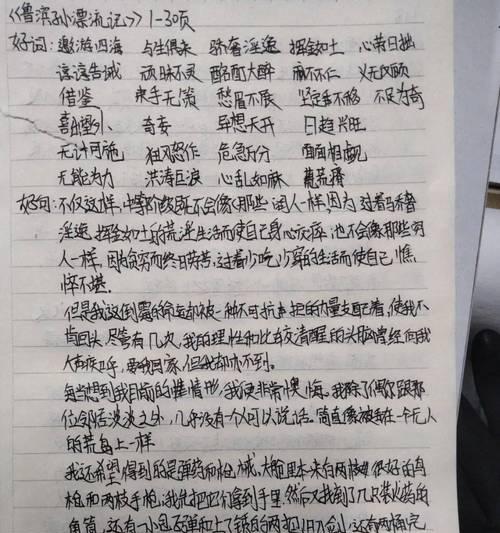 《鲁滨孙漂流记》1-30页
好词：遨游四海 与生俱来 骄奢淫逸 挥金如土 心劳日拙
谆谆告诫 顽昧不灵 酩酊大醉 麻木不仁 义无反顾
借鉴 束手无策 愁眉不展 坚定不移 不足为奇
喜出望外 奇妄 异想天开 日趋兴旺
无计可施 狂风怒作 危急万分 面面相觑
无能为力 洪涛巨浪 心乱如麻
好句：不仅这样，中等阶级既不会像那些阔人一样，因为过着骄奢
淫逸，挥金如土的荒淫生活而使自己身心疲瘁，也不会像那些穷
人一样，因为贫穷而终日劳苦，过着少吃少穿的生活而使自己憔
悴不堪。
但是我这倒霉的命运却被一种不可抗拒的力量支配着，使我不
肯回头，尽管有几次，我的理性和比较清醒的头脑曾经向我
大声疾呼，要我回家，但我却办不到。
每当想到我目前的情形，我便非常懊悔。我除了偶尔跟那
位邻居谈谈之外，几乎没有一个人可以说话。简直像被丢在一个无人
的荒岛上一样
我还希望得到的是弹药和枪械，大舱里本来有两枝很好的鸟
枪和两枝手枪，我先把它们拿到手里，然后又找到了几只装火药的
角筒，还有一小包子弹和上了锈的两把旧刀剑，还有两桶完